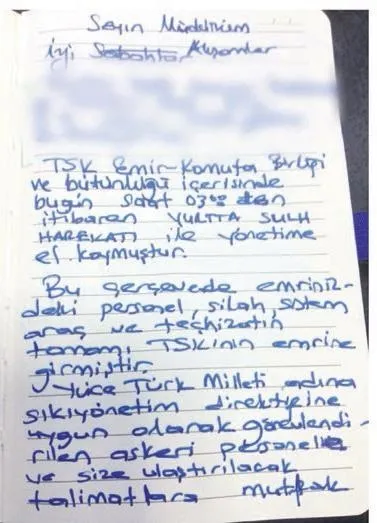 Sayın Müdürüm
iyi Sabahlar Akşamlar
TSK Emir-Komuta Birliği
ve bütünlüğü içerisinde
bugün saat 03⁰⁰ den
itibaren YURTTA SULH
HAREKATI ile yönetime
el koymuştur.
Bu çerçevede emriniz-
deki personel, silah, sistem
araç ve teçhizatın
tamamı TSK'nın emrine
girmiştir.
Yüce Türk Milleti adına
sıkıyönetim direktifine
uygun olarak görevlendi-
rilen askeri personele
ve size ulaştırılacak
talimatlara mutlak